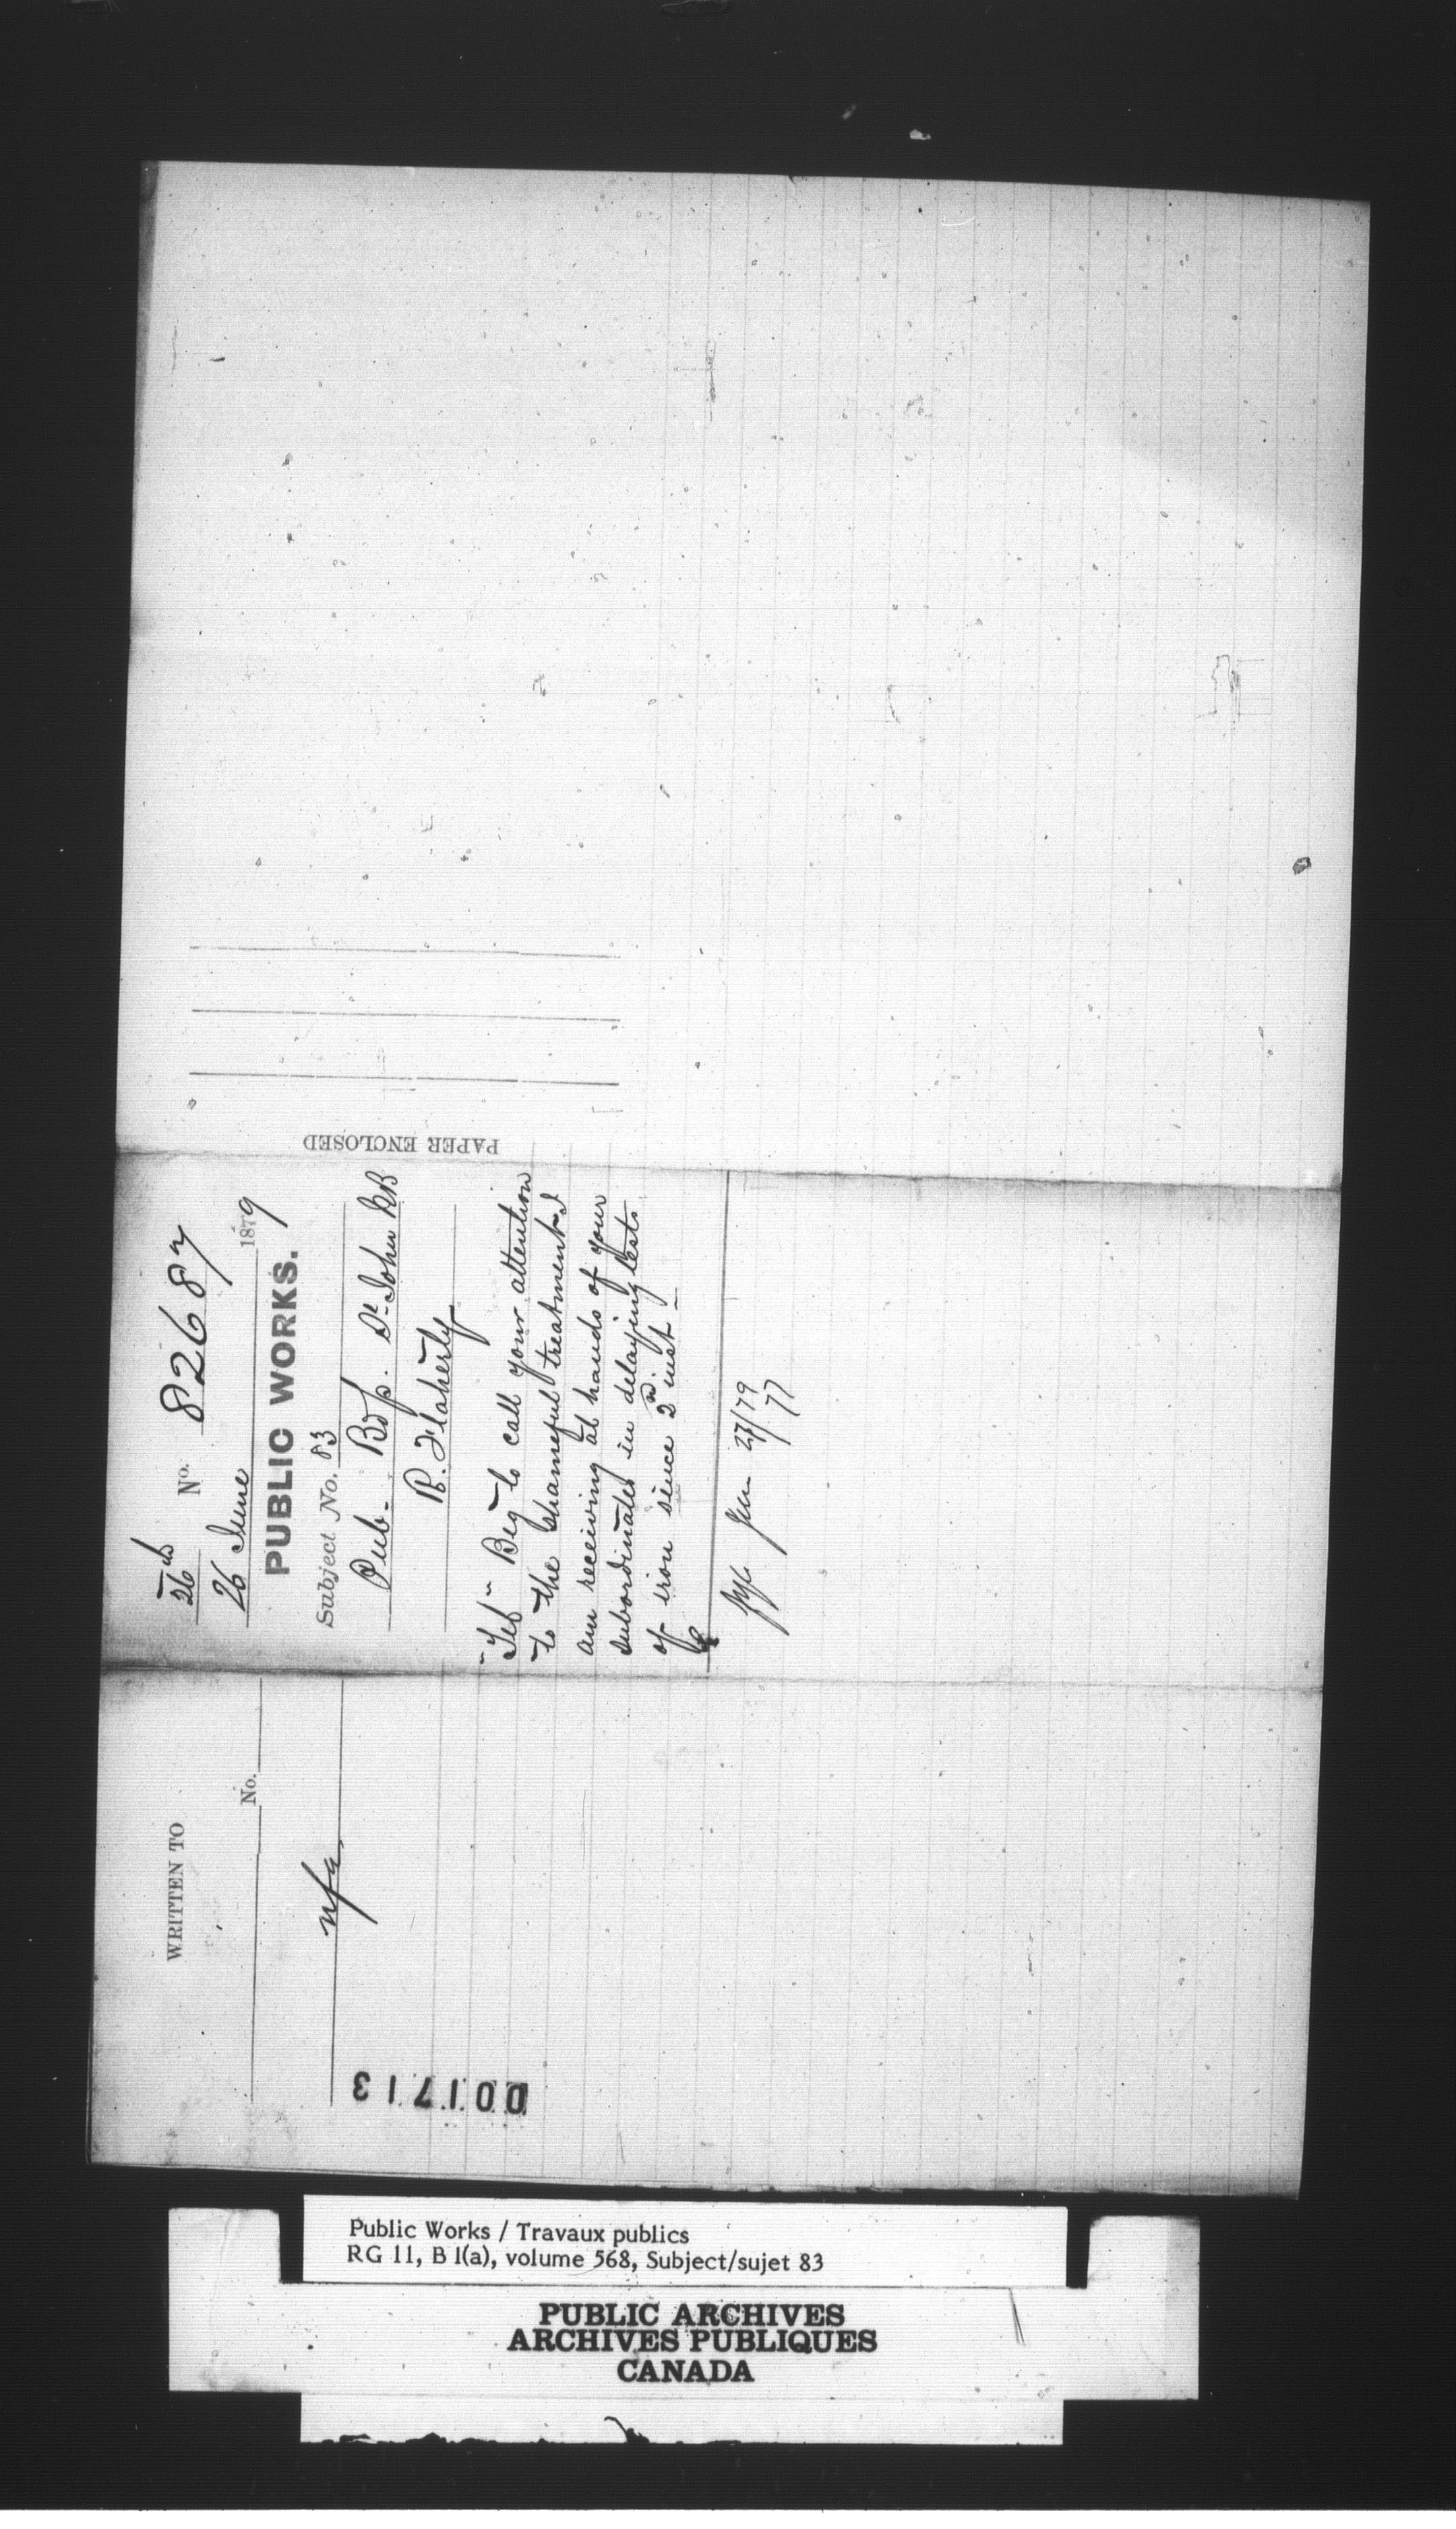 26th No. 82687
26 June 1879
PUBLIC WORKS.
Subject No. 83
Pub. Bdgs. St. John NB
R. Flaherty
"Tel" Beg to call your attention
to the shameful treatment I
am receiving at hands of your
subordinates in delaying tests
of iron since 2nd inst -
27/79
77
PAPER ENCLOSED
WRITTEN TO
No.
nfa
001713
Public Works / Travaux publics
RG 11, B 1(a), volume 568, Subject/sujet 83
PUBLIC ARCHIVES
ARCHIVES PUBLIQUES
CANADA